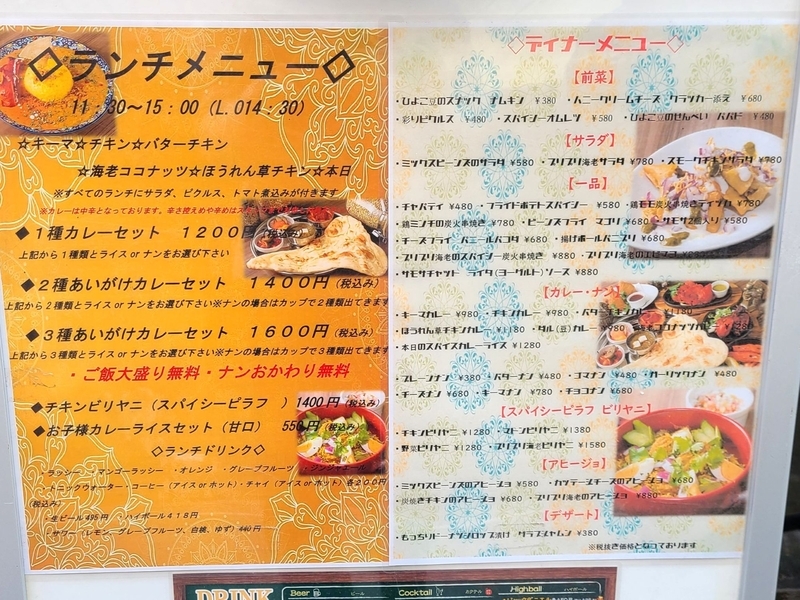 ◇ランチメニュー◇
11:30〜15:00 (L.O14:30)
☆キーマ☆チキン☆バターチキン
☆海老ココナッツ☆ほうれん草チキン☆本日
※すべてのランチにサラダ、ピクルス、トマト煮込みが付きます
※カレーは中辛となっております。辛さ控えめや辛めは
◆1種カレーセット 1200円
上記から1種類とライス or ナンをお選び下さい
◆2種あいがけカレーセット 1400円(税込み)
上記から2種類とライス or ナンをお選び下さい※ナンの場合はカップで2種類出てきます
◆3種あいがけカレーセット 1600円(税込み)
上記から3種類とライス or ナンをお選び下さい※ナンの場合はカップで3種類出てきます
・ご飯大盛り無料・ナンおかわり無料
◆チキンビリヤニ(スパイシーピラフ ) 1400円(税込み)
◆お子様カレーライスセット(甘口) 550円(税込み)
◇ランチドリンク◇
・ラッシー ・マンゴーラッシー ・オレンジ ・グレープフルーツ ・ジンジャエール
・トニックウォーター・コーヒー(アイス or ホット)・チャイ(アイス or ホット)各200円
(税込み)
・生ビール495円 ・ハイボール418円
・サワー(レモン、グレープフルーツ、白桃、ゆず)440円
◇ディナーメニュー◇
【前菜】
・ひよこ豆のスナック ナムキン ¥380 ・ハニークリームチーズ クラッカー添え ¥680
・彩りピクルス ¥480 ・スパイシーオムレツ ¥580 ・ひよこ豆のせんべい パパド ¥480
【サラダ】
・ミックスビーンズのサラダ ¥580 ・プリプリ海老サラダ ¥780 ・スモークチキンサラダ ¥780
【一品】
・チャパティ ¥480 ・フライドポテトスパイシー ¥580 ・鶏モモ炭火串焼きティッカ ¥780
・鶏ミンチの炭火串焼き ¥780 ・ビーンズフライ マゴリ ¥680 ・サモサ2個入り ¥580
・チーズフライ パニールパコダ ¥680 ・揚げボールパニプリ ¥680
・プリプリ海老のスパイシー炭火串焼き ¥880 ・プリプリ海老のエビマヨ
・サモサチャット ライタ(ヨーグルト)ソース ¥880
【カレー・ナン】
・キーマカレー ¥980 ・チキンカレー ¥980 ・バターチキンカレー ¥1180
・ほうれん草チキンカレー ¥1180 ・ダル(豆)カレー ¥980 ・海老ココナツカレー
・本日のスパイスカレーライス ¥1280
・プレーンナン ¥380 ・バターナン ¥480 ・ゴマナン ¥480 ・ガーリックナン ¥480
・チーズナン ¥680 ・キーマナン ¥780 ・チョコナン ¥680
【スパイシーピラフ ビリヤニ】
・チキンビリヤニ ¥1280 ・マトンビリヤニ ¥1380
・野菜ビリヤニ ¥1280 ・プリプリ海老ビリヤニ ¥1580
【アヒージョ】
・ミックスビーンズのアヒージョ ¥580 ・カッテージチーズのアヒージョ ¥680
・炭焼きチキンのアヒージョ ¥680 ・プリプリ海老のアヒージョ ¥880
【デザート】
・もっちりドーナツシロップ漬け グラブジャムン ¥380
※税抜き価格となっております
DRINK Beer ビール Cocktail カクテル Highball ハイボール